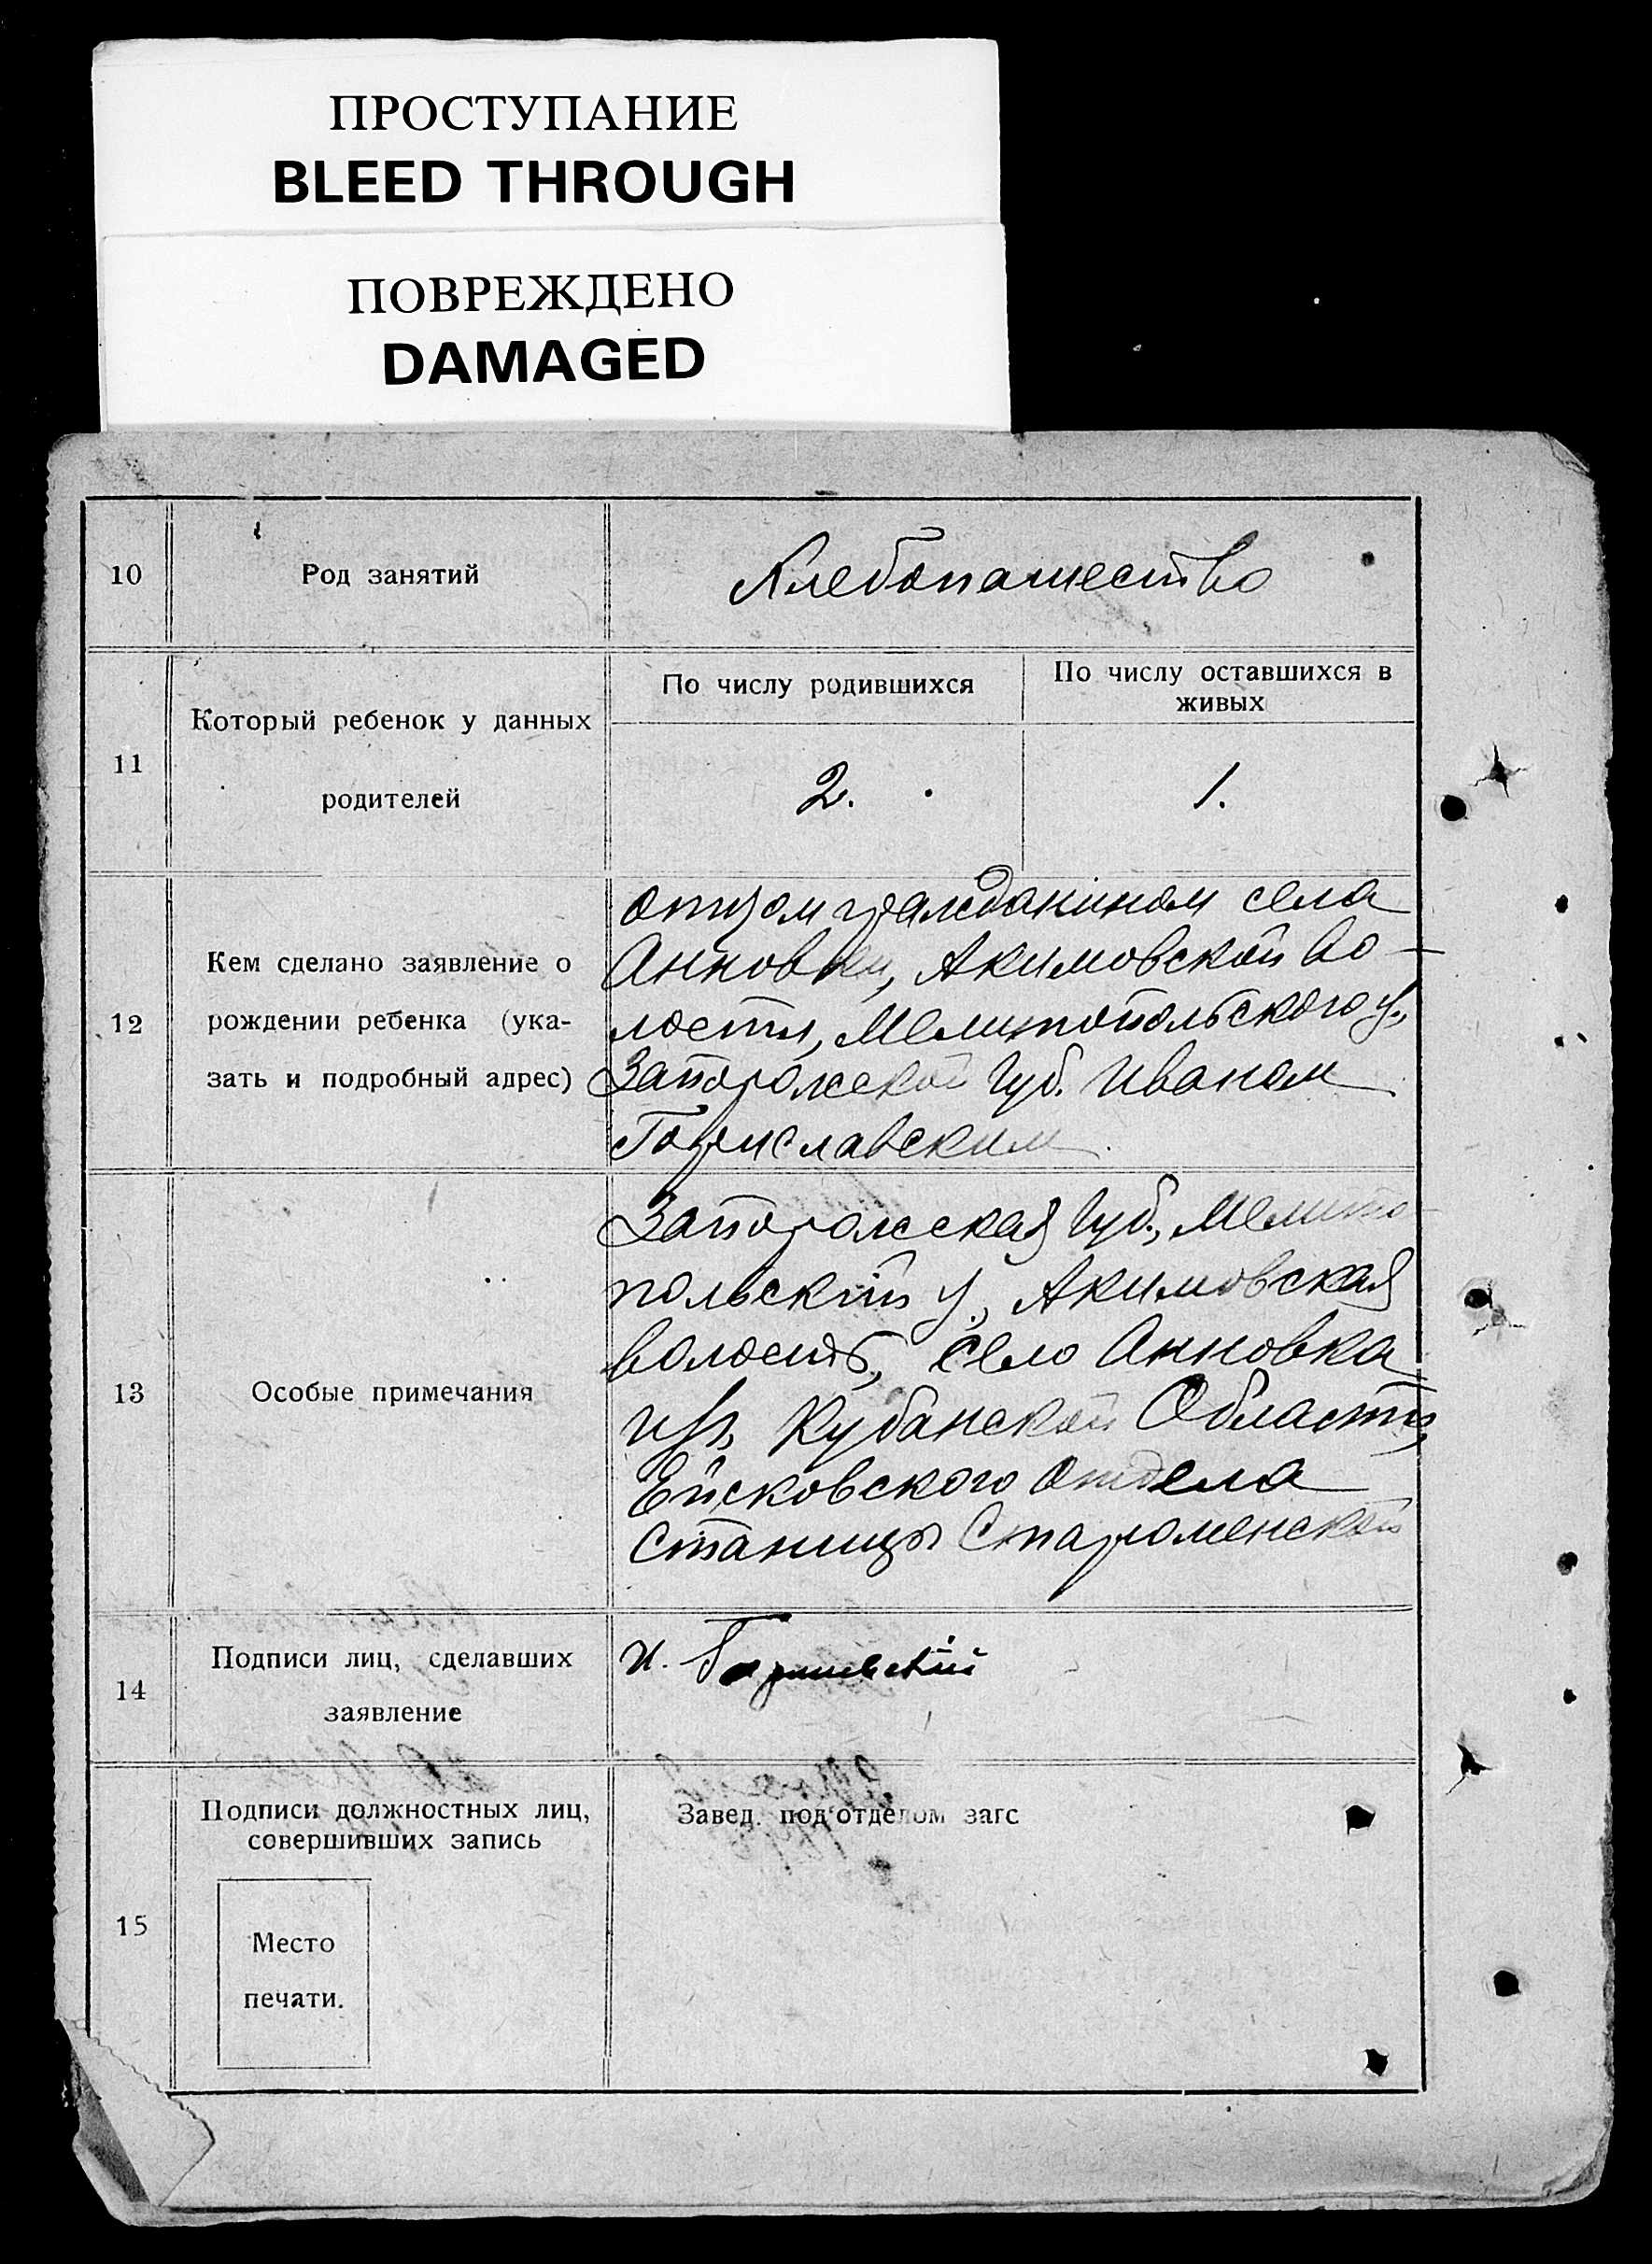 ПРОСТУПАНИЕ
BLEED THROUGH
ПОВРЕЖДЕНО
DAMAGED
10
Род занятий
Хлебопашество
11
Который ребенок у данных
родителей
По числу родившихся
По числу оставшихся в
живых
2.
1.
12
Кем сделано заявление о
рождении ребенка (ука-
зать и подробный адрес)
отцом гражданином села
Анновки, Акимовской во-
лости, Мелитопольского у.,
Запорожской губ. Иваном
Гориславским.
13
Особые примечания
Запорожская губ., Мелито-
польский у., Акимовская
волость, село Анновка
из Кубанской Области,
Ейсковского отдела
Станицы Староменской
14
Подписи лиц, сделавших
заявление
И.
15
Подписи должностных лиц,
совершивших запись
Место
печати.
Завед. под'отделом загс